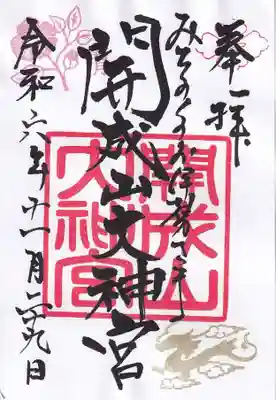 奉拝
みちのくのお伊勢さま
開成山大神宮
開成山大神宮
令和六年十一月二九日